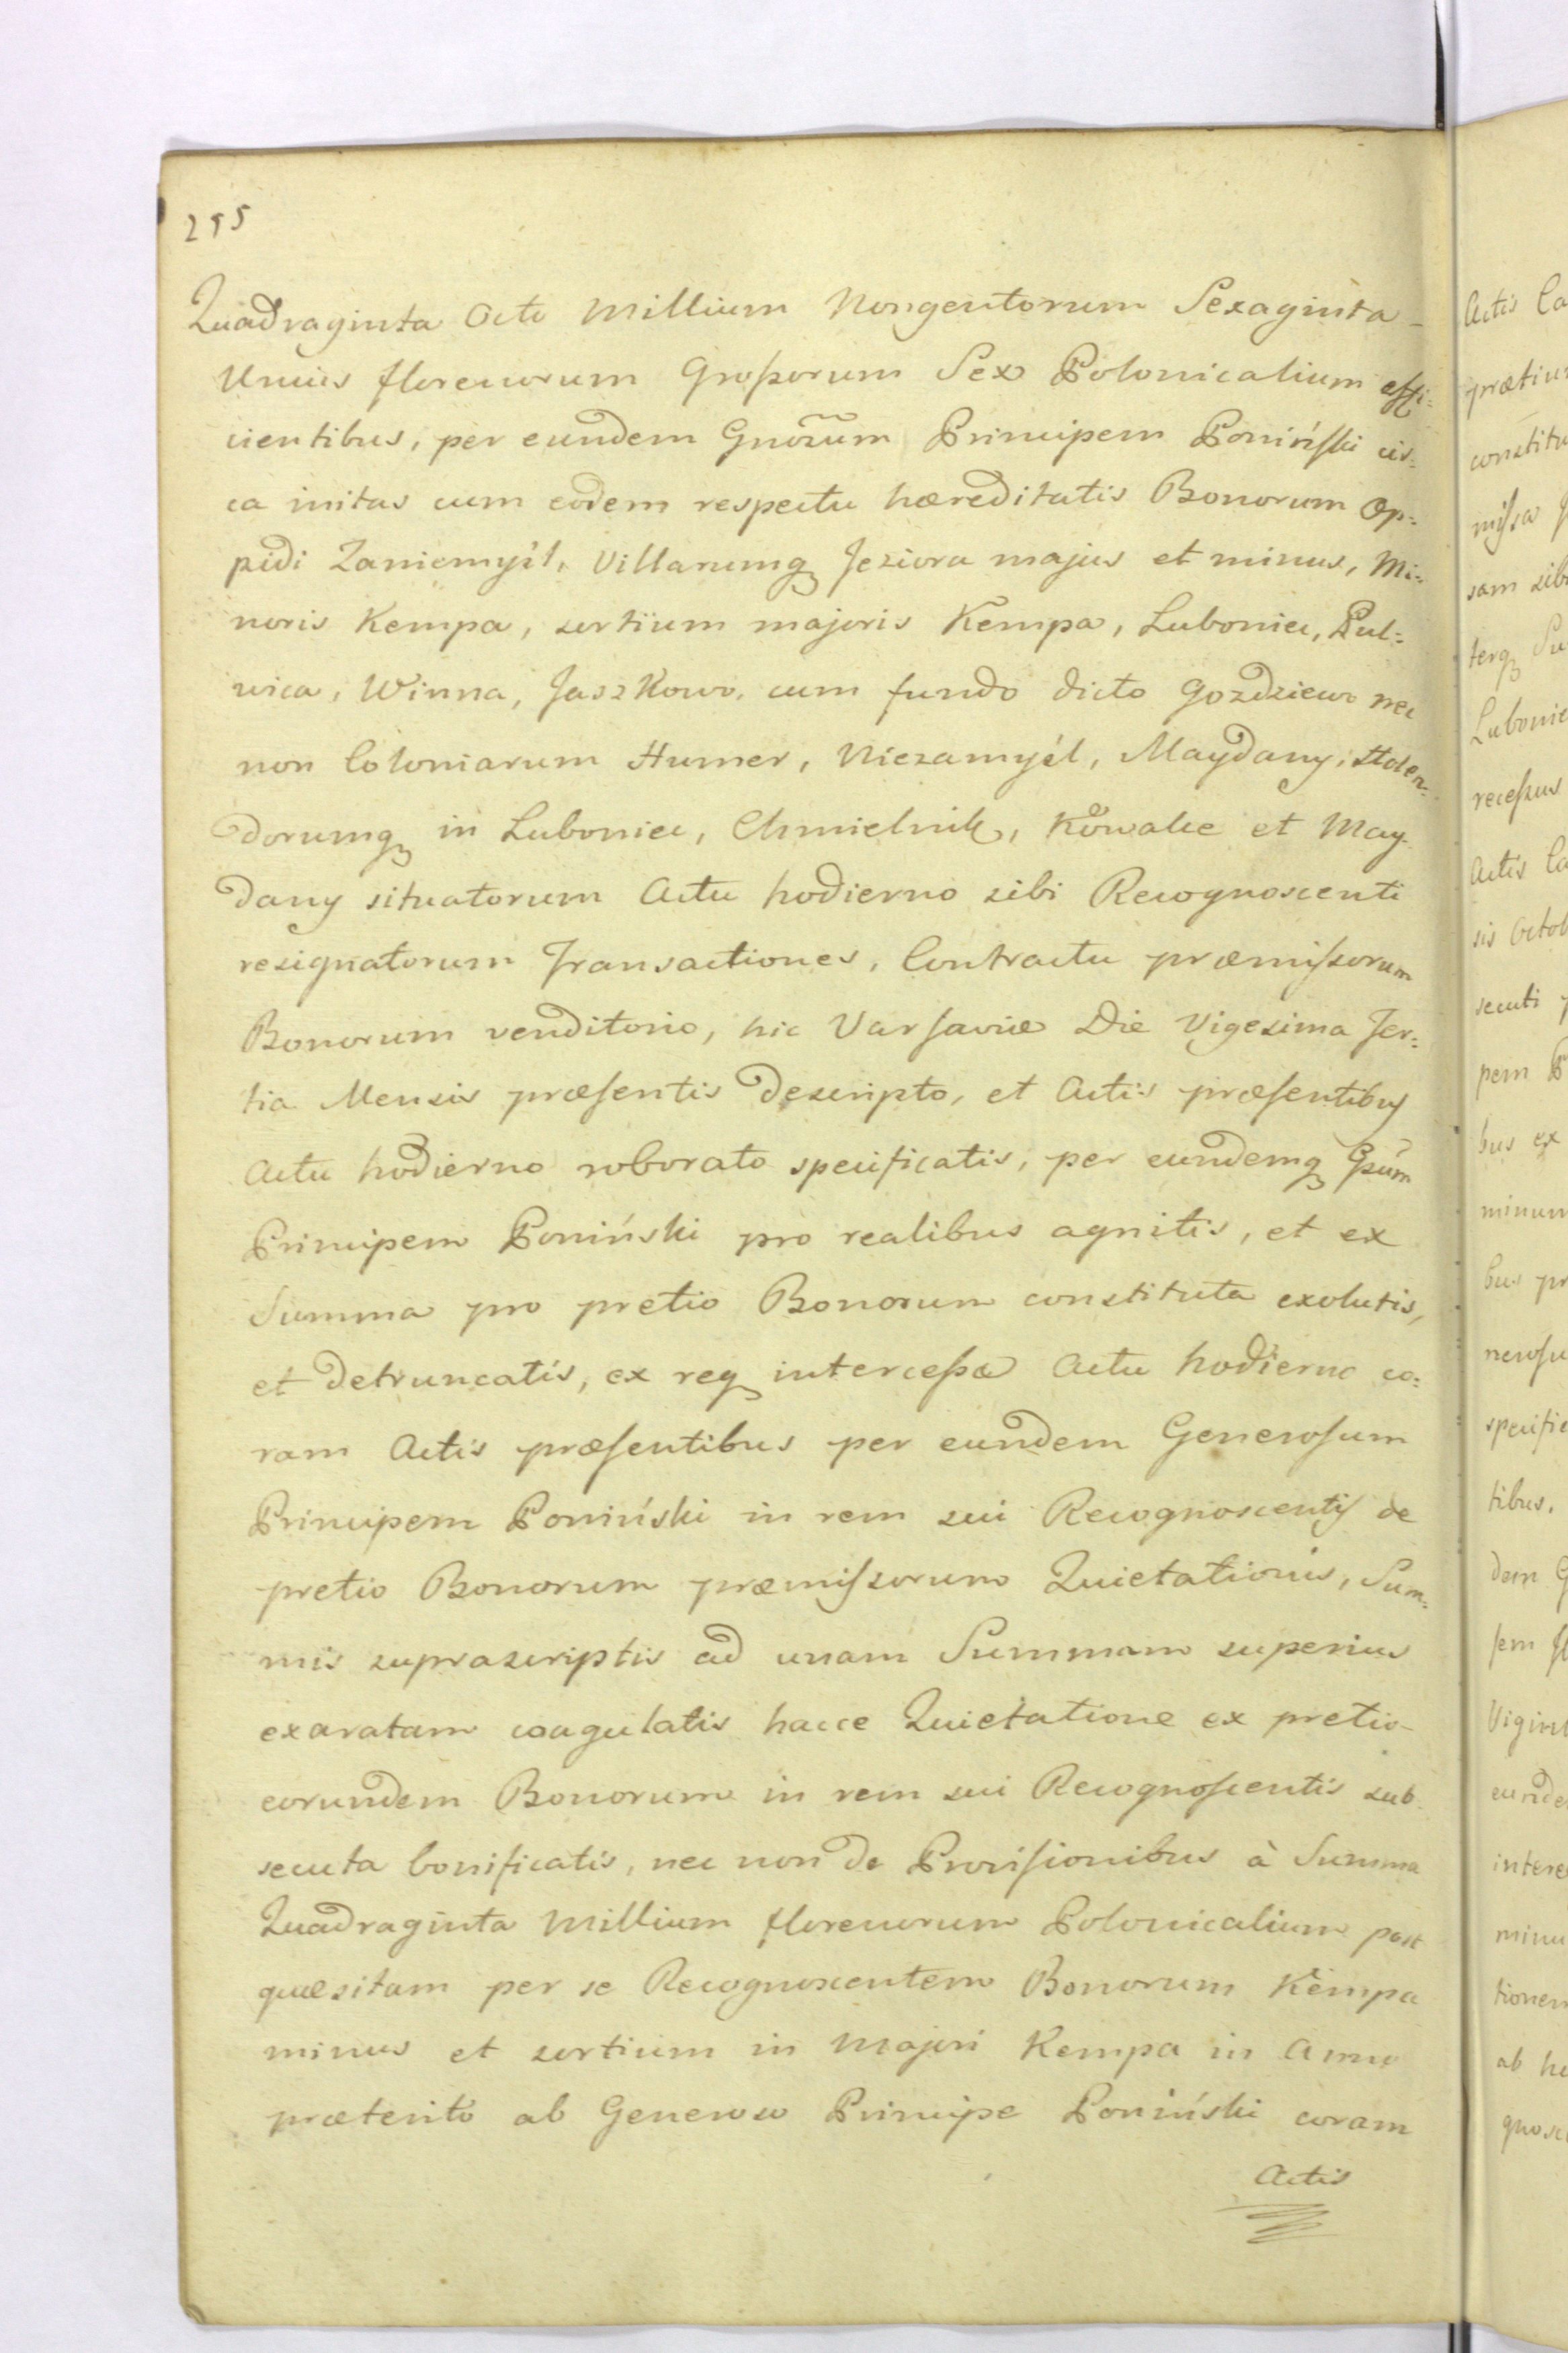 255
Quadraginta Octo Millium Nongentorum Sexaginta
Unius florenorum Groszorum Sex Polonicalium effi=
cientibus, per eundem Gnõrum Principem Poniński cir=
ca initas cum eodem respectu hæreditatis Bonorum Op=
pidi Zaniemyśl, Villarumq Jeziora majus et minus, Mi=
noris Kempa, sortium majoris Kempa, Luboniec, Pol=
wica, Winna, Jaszkowo, cum fundo dicto Gozdziewo nec
non Coloniarum Humer, Niezamyśl, Maydany, Holen=
dorumq in Luboniec, Chmielnik, Kowalce et May=
dany situatorum Actu hodierno sibi Recognoscenti
resignatorum Transactiones, Contractu præmissorum
Bonorum venditorio, hic Varsaviæ Die Vigesima Ter=
tia Mensis præsentis descripto, et Actis præsentibus
Actu hodierno roborato specificatis, per eundemq Gsum
Principem Poniński pro realibus agnitis, et ex
Summa pro pretio Bonorum constituta exolutis,
et detruncatis, ex req intercessæ Actu hodierno co=
ram Actis præsentibus per eundem Generosum
Principem Poniński in rem sui Recognoscentis de
pretio Bonorum præmissorum Quietationis, Sum=
mis suprascriptis ad unam Summam superius
exaratam coagulatis hacce Quietatione ex pretio
eorundem Bonorum in rem sui Recognoscentis sub
secuta bonificatis, nec non de Provisionibus à Summa
Quadraginta Millium florenorum Polonicalium post
quæsitam per se Recognoscentem Bonorum Kempa
minus et sortium in Majori Kempa in Anno
præterito ab Generoso Principe Poniński coram
Actis